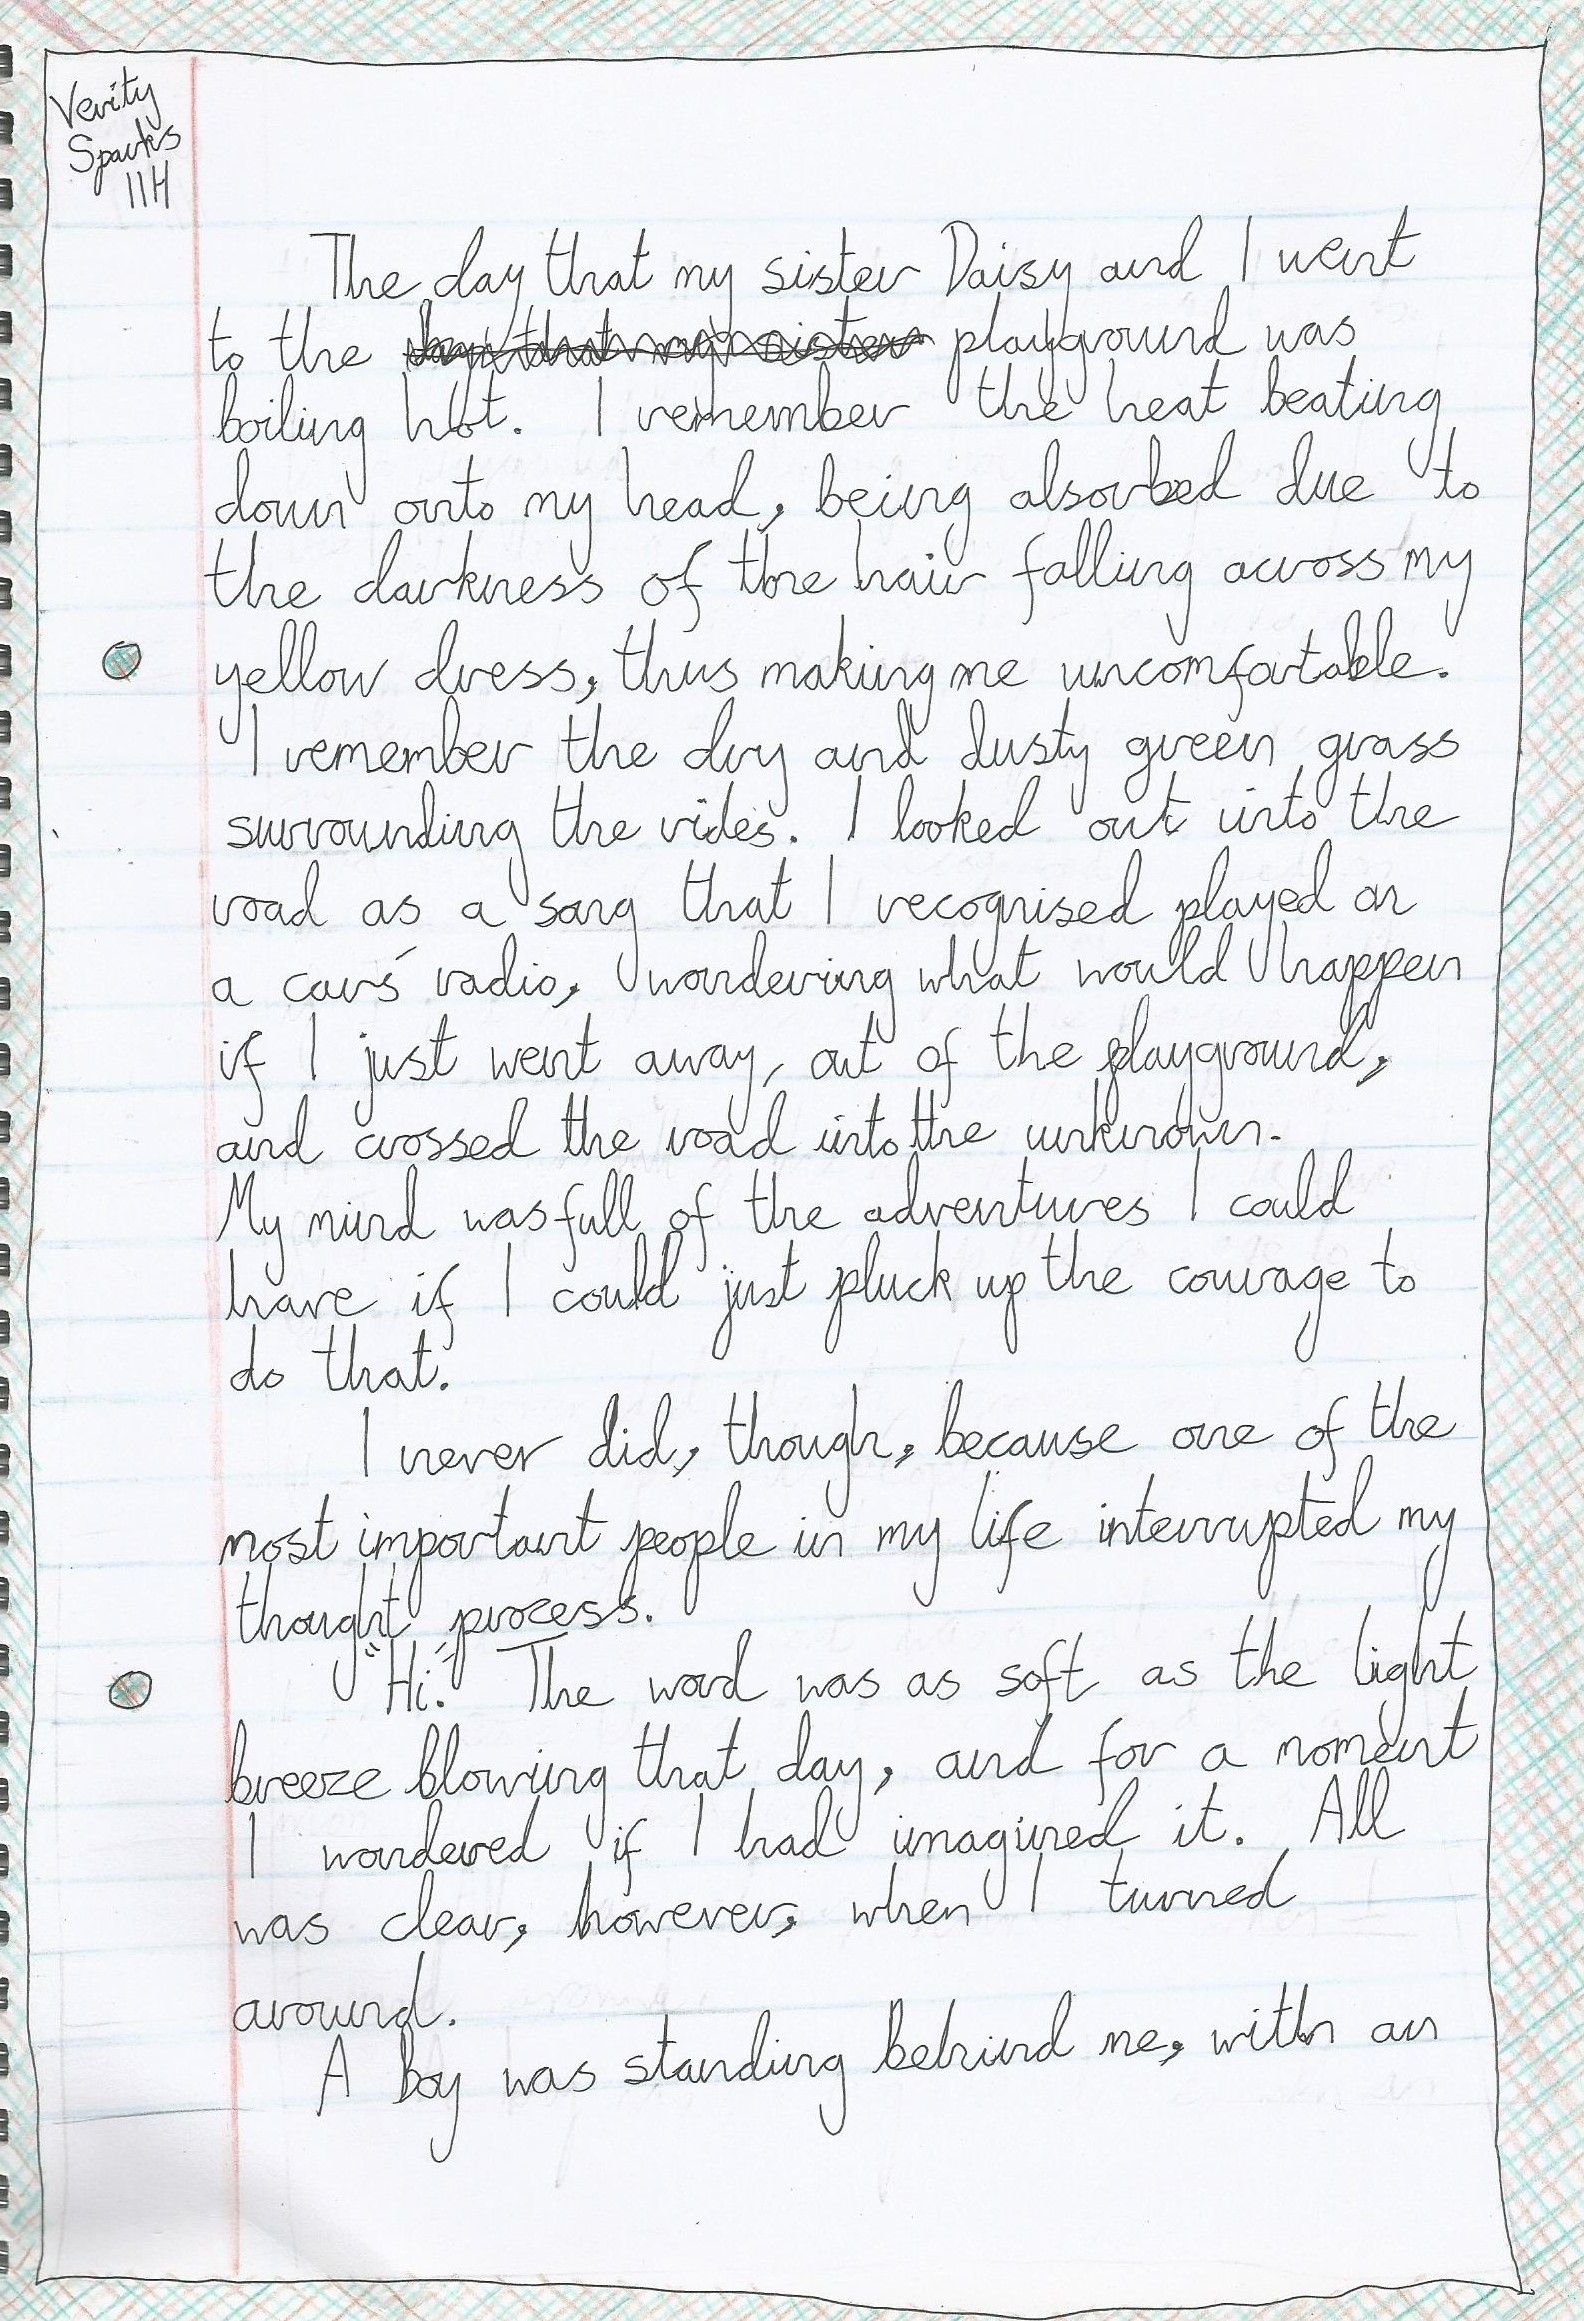 Verity
Sparks
11H
The day that my sister Daisy and I went
to the day that my sister playground was
boiling hot. I remember the heat beating
down onto my head, being absorbed due to
the darkness of the hair falling across my
yellow dress, thus making me uncomfortable.
I remember the dry and dusty green grass
surrounding the rides. I looked out into the
road as a song that I recognised played on
a car's radio, wondering what would happen
if I just went away, out of the playground,
and crossed the road into the unknown.
My mind was full of the adventures I could
have if I could just pluck up the courage to
do that.
I never did, though, because one of the
most important people in my life interrupted my
thought process.
"Hi." The word was as soft as the light
breeze blowing that day, and for a moment
I wondered if I had imagined it. All
was clear, however, when I turned
around.
A boy was standing behind me, with an